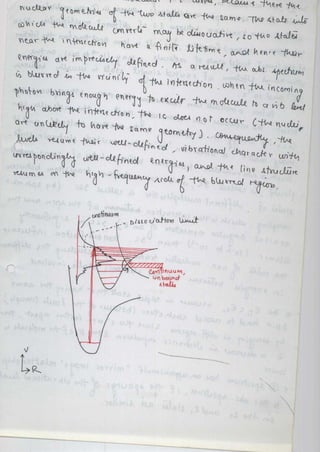 because there the
nuclear geometries of the two states are the same. The state into
which the molecule converts may be dissociative, so the states
near the intersection have a finite lifetime, and hence their
energies are imprecisely defined. As a result, the abs spectrum
is blurred in the vicinity of the intersection. When the incoming
photon brings enough energy to excite the molecule to a vib level
high above the intersection, the IC does not occur (the nuclei
are unlikely to have the same geometry). Consequently, the
levels resume their well-defined, vibrational character with
correspondingly well-defined energies, and the line structure
resumes on the high-frequency side of the blurred region.
continuum
Dissociation limit
Continuum,
unbound
states
V
R